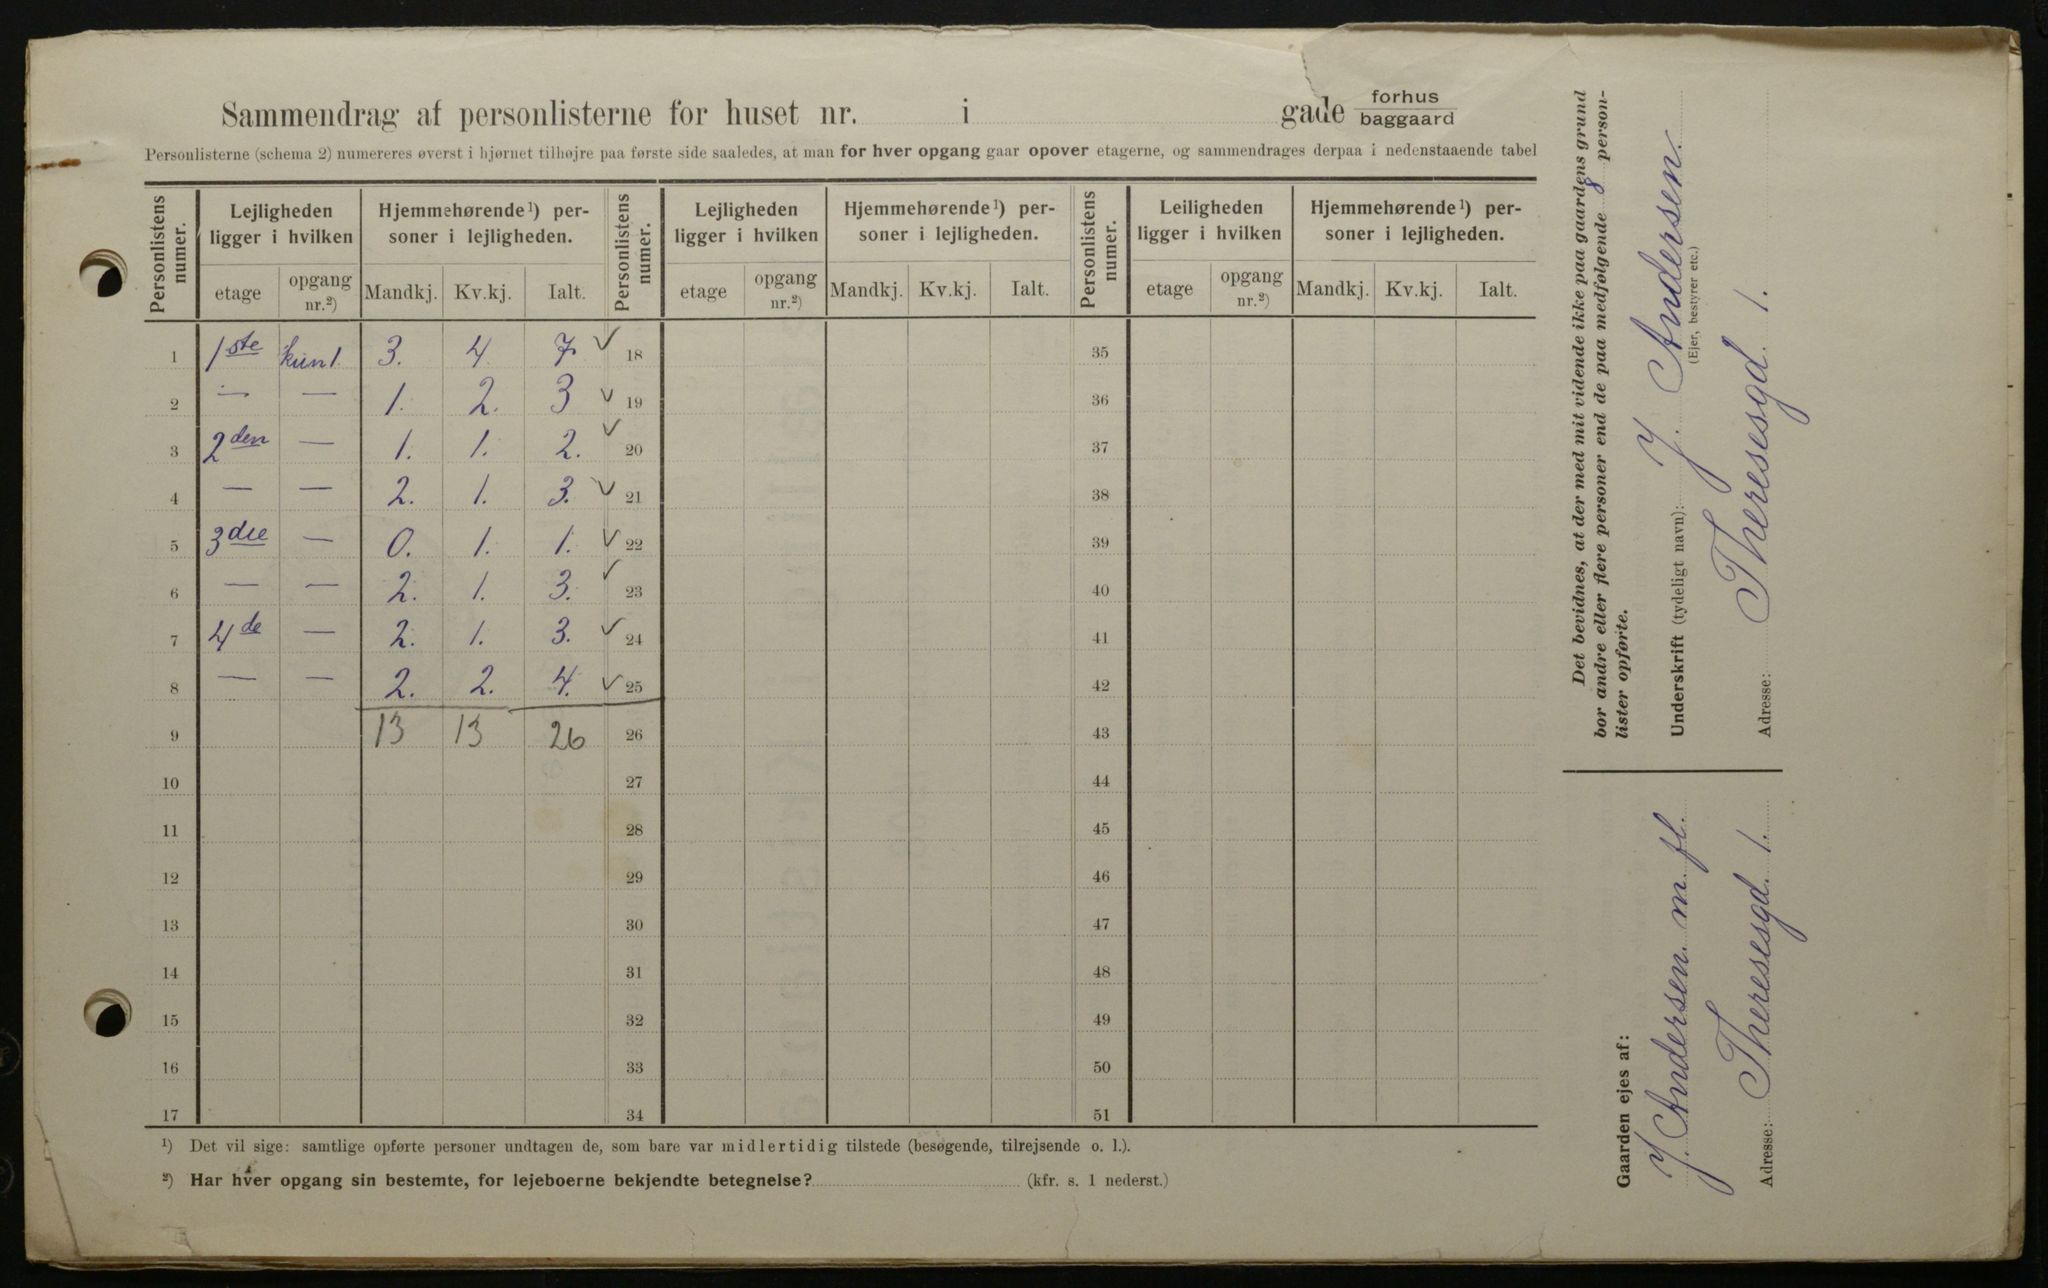 Sammendrag af personlisterne for huset nr. i gade forhus
baggaard
Personlisterne (schema 2) numereres øverst i hjørnet tilhøjre paa første side saaledes, at man for hver opgang gaar opover etagerne, og sammendrages derpaa i nedenstaaende tabel
Personlistens numer. Lejligheden ligger i hvilken Hjemmehørende¹) personer i lejligheden. Personlistens numer. Lejligheden ligger i hvilken Hjemmehørende¹) personer i lejligheden. Personlistens numer. Leiligheden ligger i hvilken Hjemmehørende¹) personer i lejligheden.
etage opgang nr.²) Mandkj. Kv.kj. Ialt. etage opgang nr.²) Mandkj. Kv.kj. Ialt. etage opgang nr.²) Mandkj. Kv.kj. Ialt.
1 1ste kun 1. 3. 4. 7. ✓ 18 35
2 — — 1. 2. 3 ✓ 19 36
3 2den — 1. 1. 2. ✓ 20 37
4 — — 2. 1. 3. ✓ 21 38
5 3die — 0. 1. 1. ✓ 22 39
6 — — 2. 1. 3. ✓ 23 40
7 4de — 2. 1. 3. ✓ 24 41
8 — — 2. 2. 4. ✓ 25 42
9 13 13 26 26 43
10 27 44
11 28 45
12 29 46
13 30 47
14 31 48
15 32 49
16 33 50
17 34 51
¹) Det vil sige: samtlige opførte personer undtagen de, som bare var midlertidig tilstede (besøgende, tilrejsende o. l.).
²) Har hver opgang sin bestemte, for lejeboerne bekjendte betegnelse? (kfr. s. 1 nederst.)
Det bevidnes, at der med mit vidende ikke paa gaardens grund
bor andre eller flere personer end de paa medfølgende 8 person-
lister opførte.
Underskrift (tydeligt navn): J. Andersen.
(Ejer, bestyrer etc.)
Adresse: Theresesgd. 1.
Gaarden ejes af:
J. Andersen m. fl.
Adresse: Theresesgd. 1.